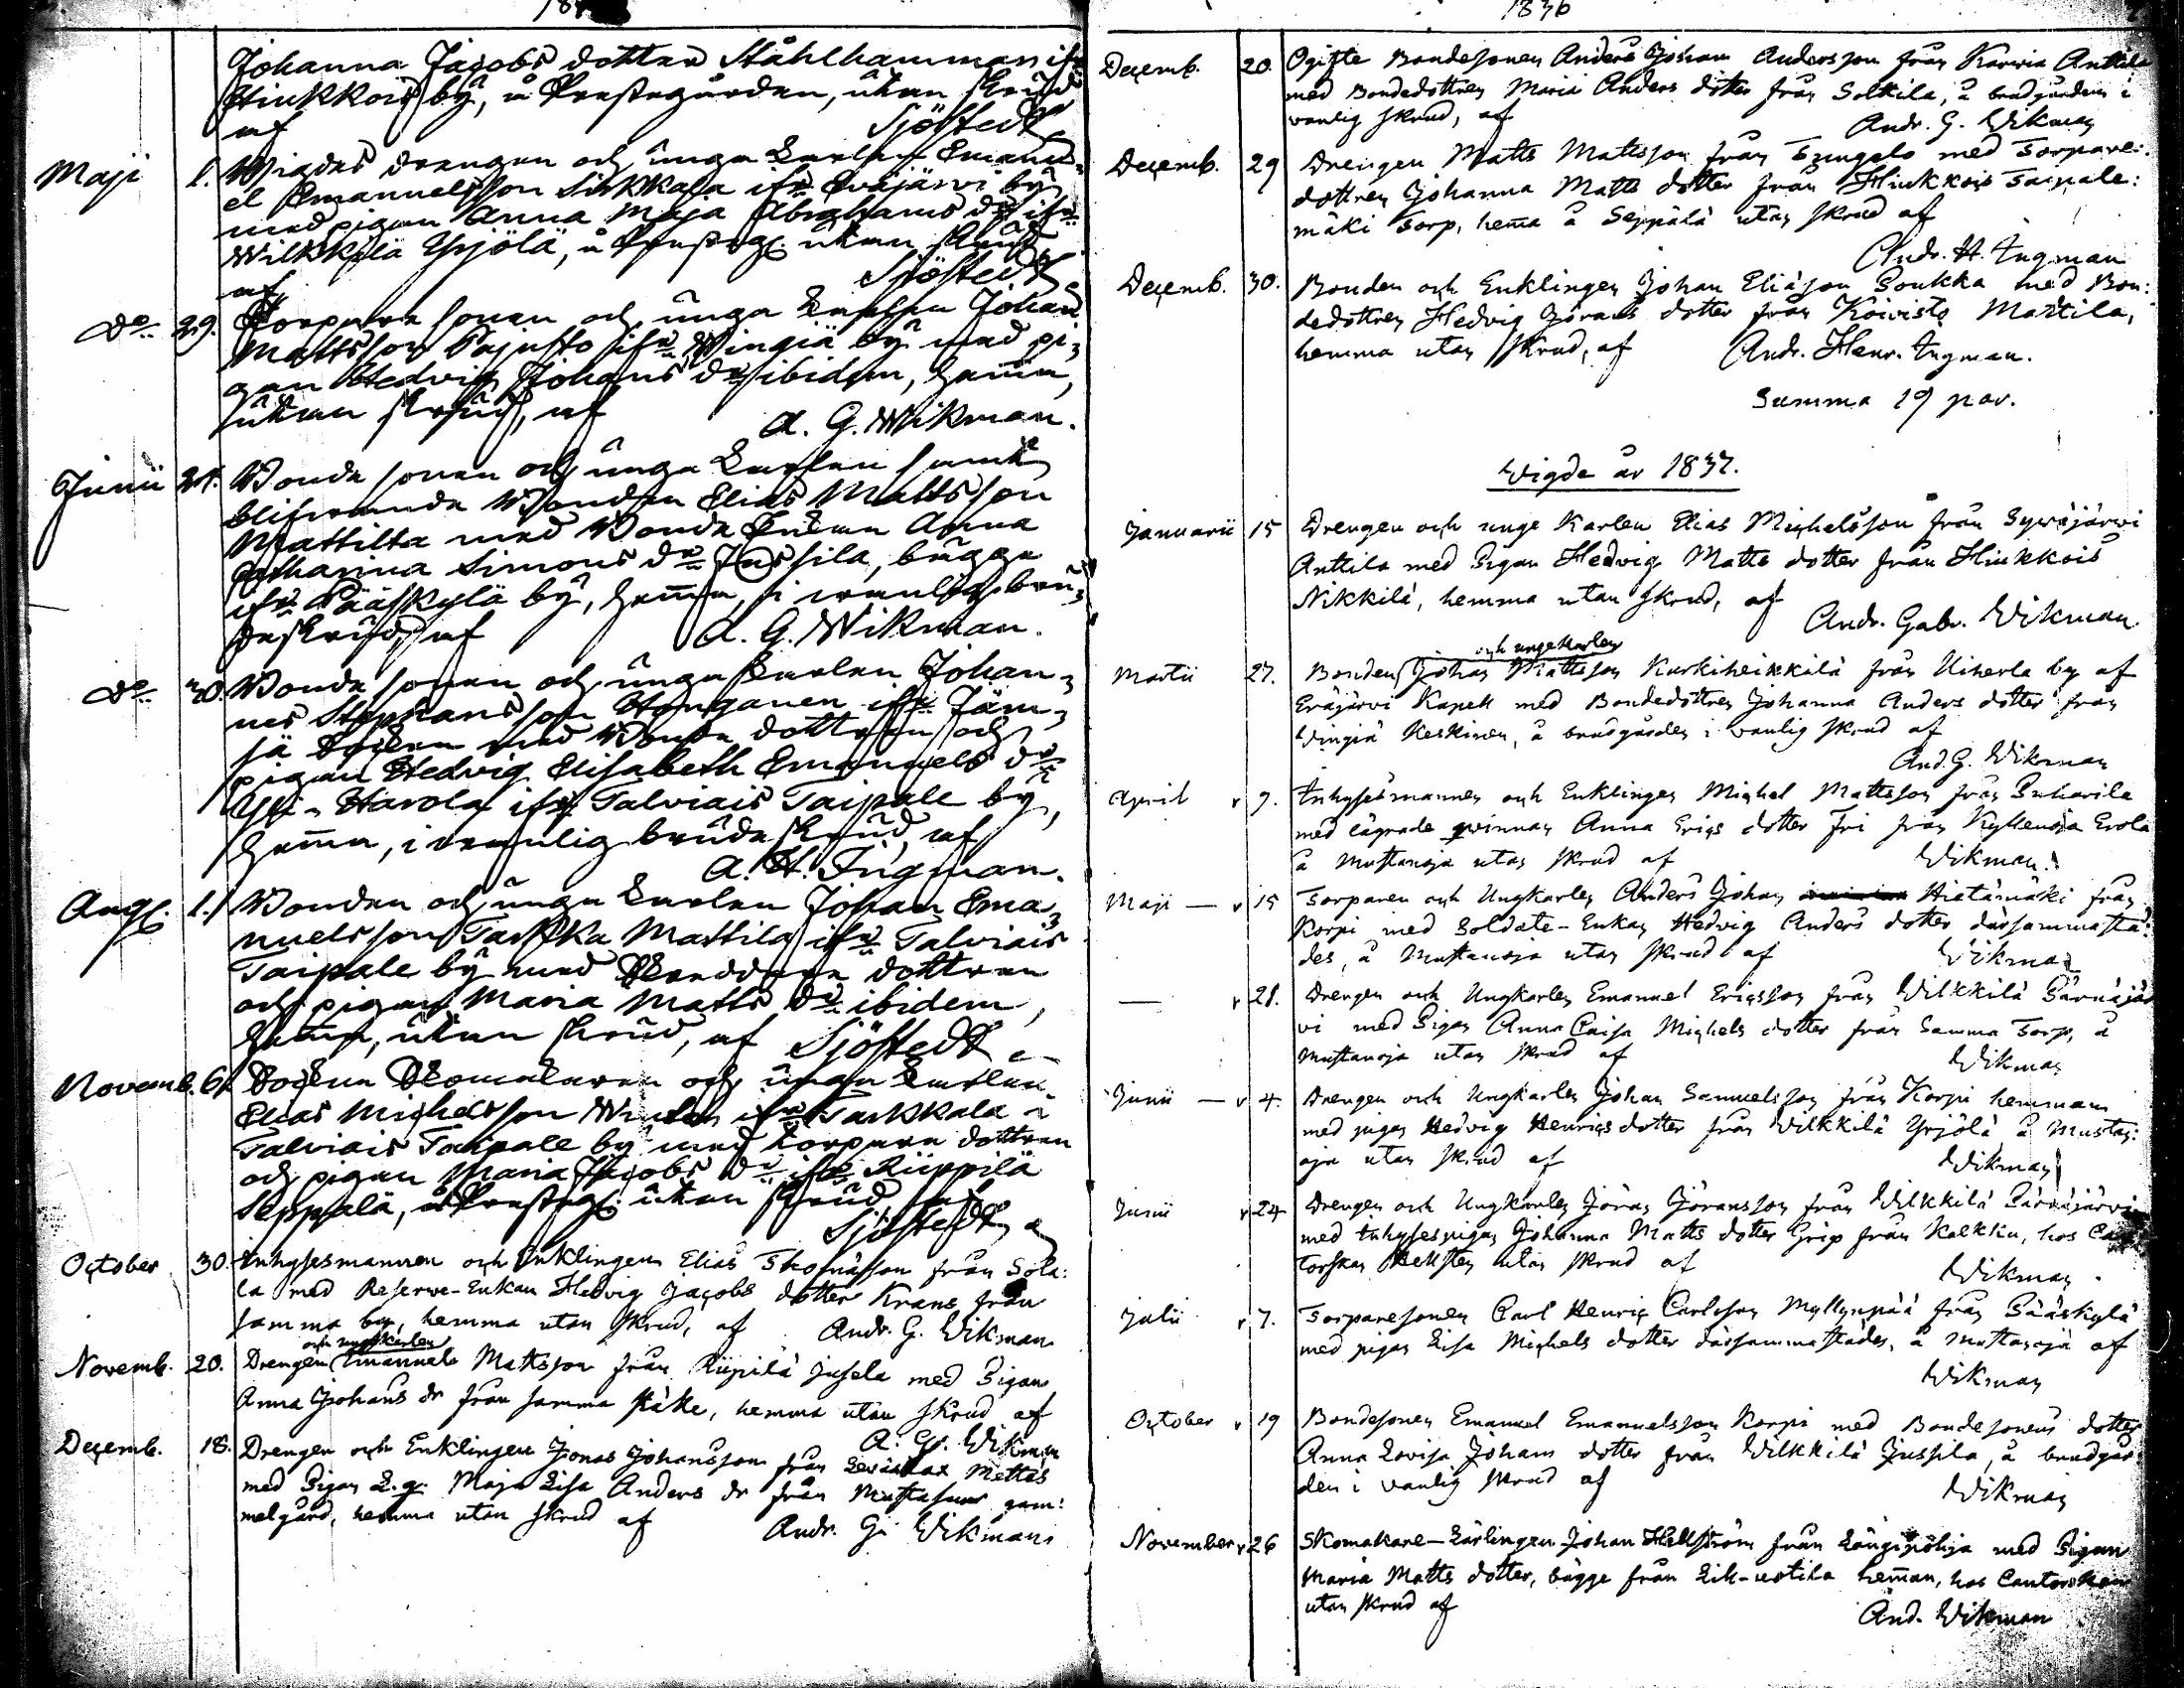 Johanna Jacobs dotter Ståhlhamman ifr.
Hinkkois by, å Prestegården, utan skrud
af Sjöstedt
Maji 1. Wigdes drengen och unga karlen Emanu-
el Emanuelsson Sirkkala ifr. Eräjärvi by
med pigan Anna Maja Abrahams dr ifr.
Wilkkilä Yrjölä, å Presteg. utan skrud
af Sjöstedt
Do 29. Torpare sonen och unga karlen Johan
Mattsson Pajusto ifr. Wingiä by med pi-
gan Hedvig Johans dr ibidem, hema,
utan skrud, af A. G. Wikman.
Junii 21. Bonde sonen och unga karlen samt
blifwande Bonden Elias Mattsson
Mattilta med Bonde Enkan Anna
Catharina Simons dr Jussila, bägge
ifr. Pääskylä by, hema, i wanlig bru-
deskrud, af A. G. Wikman.
Do 30. Bonde sonen och unga karlen Johan-
nes Stephansson Honganen ifr. Jäm-
sä Socken med Bonde dottren och
pigan Hedvig Elisabeth Emanuels dr
Yli-Harola ifr. Talviais Taipale by,
hema, i wanlig brude skrud, af
A. H. Ingman.
Aug. 1. Bonden och unga karlen Johan Ema-
nuelsson Tarkka Mattila ifr. Talviais
Taipale by med Skreddare dottren
och pigan Maria Matts dr ibidem,
hema, utan skrud, af Sjöstedt
Novemb. 6. Socken Skomakaren och unga karlen
Elias Michelsson ifr. Tarkkala i
Talviais Taipale by med torpare dottren
och pigan Maria Jacobs dr ifr. Riippilä
Seppälä, å Presteg. utan skrud af
Sjöstedt
October 30. Inhysesmannen och Enklingen Elias Thomasson från Sola:
la med Reserve-Enkan Hedvig Jacobs dotter Krans från
samma by, hemma utan skrud, af Andr. G. Wikman
och ungkarlen
Novemb. 20. Drengen Emanuel Mattsson från Riipilä Jusela med Pigan
Anna Johans dr från samma ställe, hemma utan skrud af
A. G. Wikman
Decemb. 18. Drengen och Enklingen Jonas Johansson från Mattas
med Pigan L.q. Maja Lisa Anders dr från gam:
melgård, hemma utan skrud af Andr. G. Wikman
1836
Decemb. 20. Ogifte Bondesonen Anders Johan Andersson från Karvia Anttila
med Bondedottren Maria Anders dotter från Solkila, å brudgården i
vanlig skrud, af Andr. G. Wikman
Decemb. 29 Drengen Matts Mattsson från med Torpare:
dottren Johanna Matts dotter från Hinkkois Taipale:
mäki Torp, hema å Seppälä utan skrud af
Andr. H. Ingman
Decemb. 30. Bonden och Enklingen Johan Eliasson Soukka med Bon:
dedottren Hedvig Görans dotter från Koivisto Marttila,
hemma utan skrud, af Andr. Henr. Ingman.
Summa 19 par.
Wigde år 1837.
Januarii 15 Drengen och unge Karlen Elias Michelsson från Syväjärvi
Anttila med Pigan Hedvig Matts dotter från Hinkkois
Nikkilä, hemma utan skrud, af
Andr. Gabr. Wikman
och ungekarlen
Martii 27. Bonden Johan Mattsson Kurkiheikkilä från Uiherla by af
Eräjärvi Kapell med Bondedottren Johanna Anders dotter från
Wingiä Keskinen, å brudgården i vanlig skrud af
And. G. Wikman
April v 9. Inhysesmannen och Enklingen Michel Mattsson från Puharila
med lägrade qvinnan Anna Erics dotter Fri från Kyllenoja Erola
å Mustanoja utan skrud af Wikman.
Maji — v 15 Torparen och Ungkarlen Anders Johan Hietämäki från
Korpi med Soldate-Enkan Hedvig Anders dotter därsammastä:
des, å Mustanoja utan skrud af Wikman
— v 28. Drengen och Ungkarlen Emanuel Ericsson från Wilkkilä Särnäjär
vi med Pigan Anna Caisa Michels dotter från Samma Torp, å
Mustanoja utan skrud af Wikman
Junii — v 4. Drengen och Ungkarlen Johan Samuelsson från Korpi hemman
med pigan Hedvig Henrics dotter från Wilkkilä Yrjölä å Mustan:
oja utan skrud af Wikman
Junii v 24 Drengen och Ungkarlen Jöran Jöransson från Wilkkilä Särnäjärvi
med Inhysespigan Johanna Matts dotter Grip från Kalkku, hos Can
torskan Hellsten utan skrud af Wikman.
Julii v 7. Torparesonen Carl Henric Carlsson Myllynpää från Pääskylä
med pigan Lisa Michels dotter därsammastädes, å Mustanoja af
Wikman
October v 19 Bondesonen Emanuel Emanuelsson Korpi med Bondesonens dotter
Anna Lovisa Johans dotter från Wilkkilä Jussila, å brudgår
den i vanlig skrud af Wikman
November v 26 Skomakare-Lärlingen Johan Hellström från Längipohja med Pigan
Maria Matts dotter, bägge från heman, hos Cantorskan
utan skrud af And. Wikman